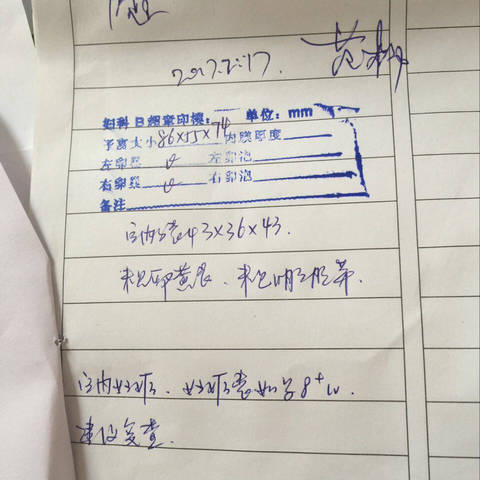 2017.2.17.
妇科B超章印模： 单位：mm
子宫大小86×55×74内膜厚度
左卵巢 √ 左卵泡
右卵巢 √ 右卵泡
备注
宫内孕囊43×36×43.
未见卵黄囊、未见明显胚芽.
宫内妊娠、妊娠囊如孕8⁺w.
建议复查.